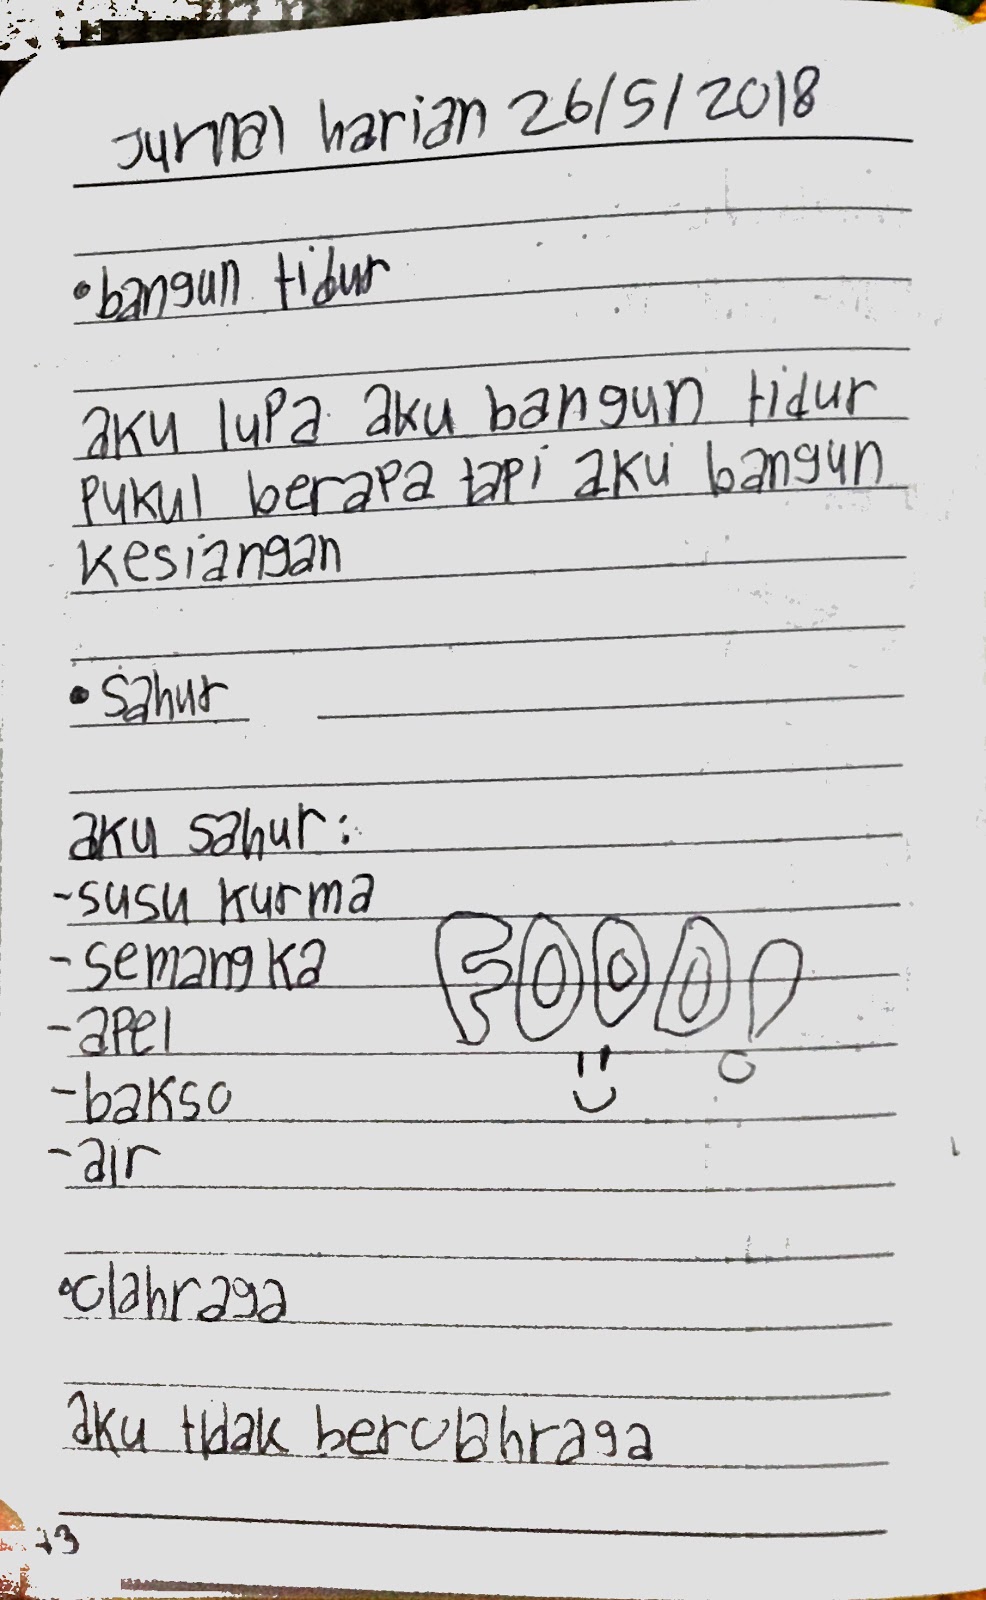 Jurnal harian 26/5/2018
•bangun tidur
aku lupa aku bangun tidur
pukul berapa tapi aku bangun
kesiangan
•Sahur
aku sahur:
-susu kurma
-semangka
FOOD
-apel
-bakso
-air
•olahraga
aku tidak berolahraga